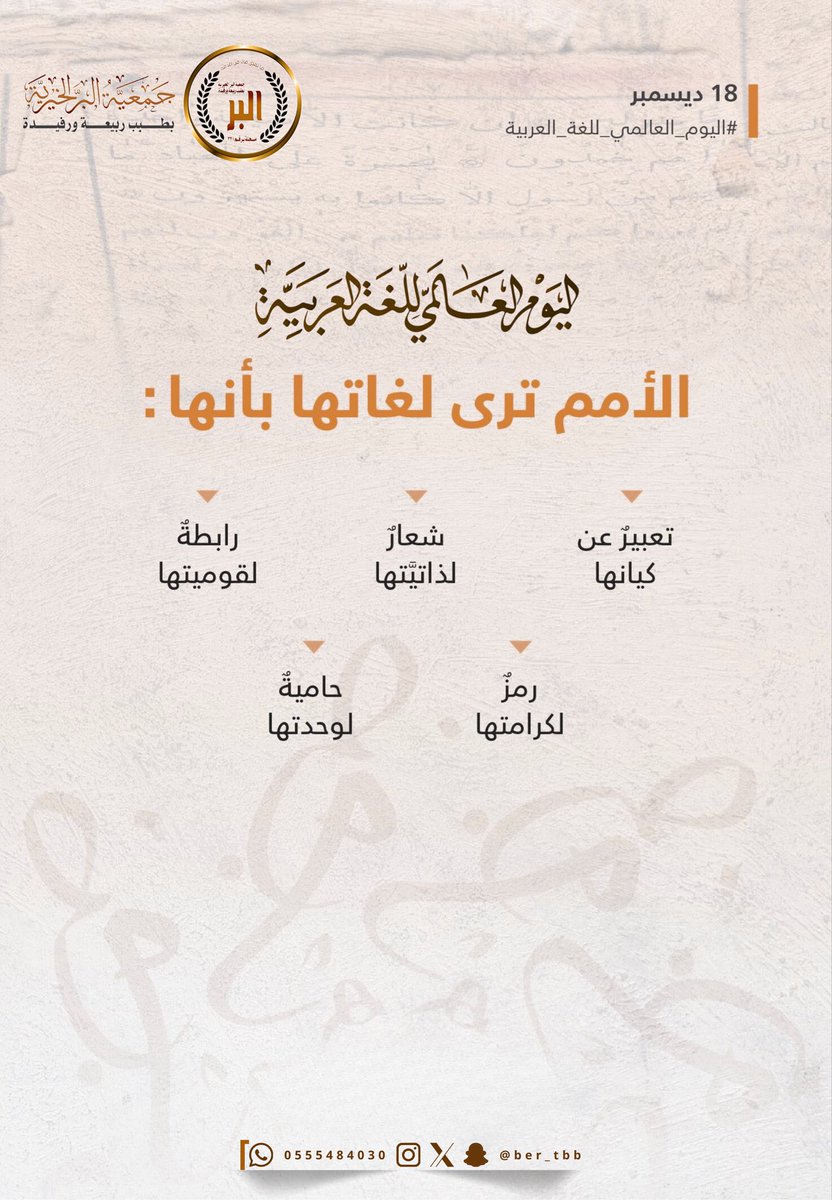 18 ديسمبر
#اليوم_العالمي_للغة_العربية
جمعية البر الخيرية
بطبب ربيعة ورفيدة
البر
اليَوْم العَالَمي لِلّغَة العَرَبِيَّةِ
الأمم ترى لغاتها بأنها:
تعبيرٌ عن
كيانها
شعارٌ
لذاتيَّتها
رابطةٌ
لقوميتها
رمزٌ
لكرامتها
حاميةٌ
لوحدتها
0555484030
@ber_tbb